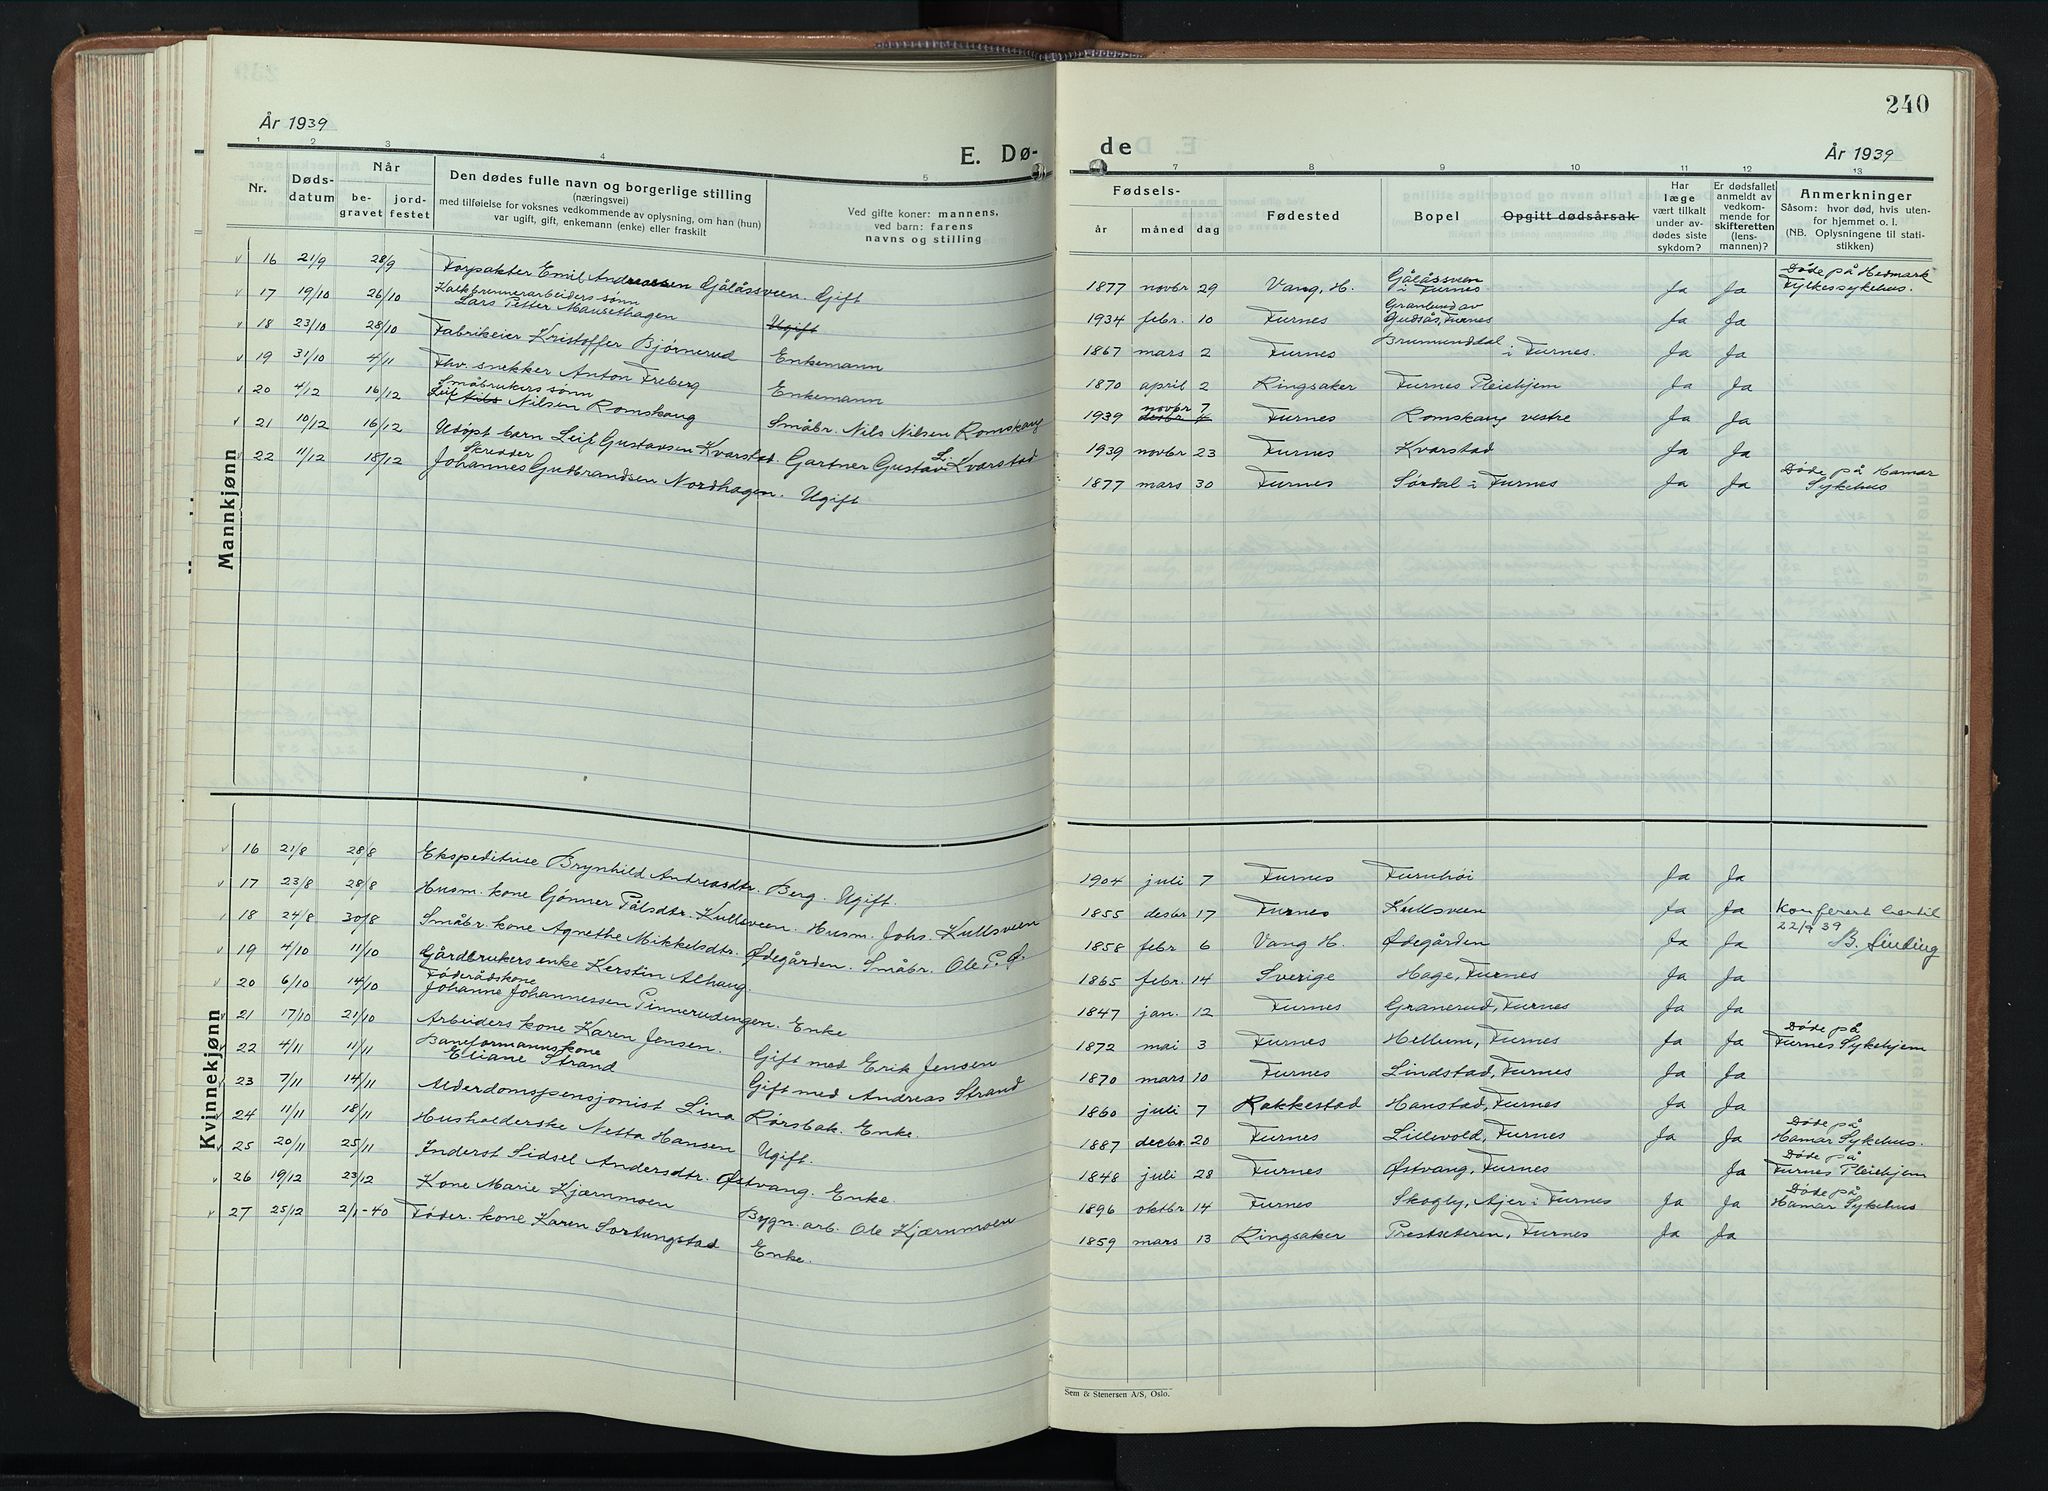 240
År 1939
E. Dø-
de
År 1939
1 2 3 4 5
7 8 9 10 11 12 13
Nr.
Døds-
datum
Når
be-
gravet
jord-
festet
Den dødes fulle navn og borgerlige stilling
(næringsvei)
med tilføielse for voksnes vedkommende av oplysning, om han (hun)
var ugift, gift, enkemann (enke) eller fraskilt
Ved gifte koner: mannens,
ved barn: farens
navns og stilling
Fødsels-
år måned dag
Fødested
Bopel
Opgitt dødsårsak
Har
læge
vært tilkalt
under av-
dødes siste
sykdom?
Er dødsfallet
anmeldt av
vedkom-
mende for
skifteretten
(lens-
mannen)?
Anmerkninger
Såsom: hvor død, hvis uten-
for hjemmet o. l.
(NB. Oplysningene til stati-
stikken)
Mannkjønn
16 21/9 28/9 Forpakter Emil Andreassen Gålåssveen. Gift
1877 novbr 29 Vang, H. Gålåssveen i Furnes Ja Ja Døde på Hedmark Fylkessykehus.
17 19/10 26/10 Kalkbrennerarbeiders sønn Lars Petter Mausethagen Ugift
1934 febr. 10 Furnes Granlund av Gudsås, Furnes Ja Ja
18 23/10 28/10 Fabrikeier Kristoffer Bjørnerud Enkemann
1867 mars 2 Furnes Brumunddal i Furnes. Ja Ja
19 31/10 4/11 Fhv. snekker Anton Freberg Enkemann
1870 april 2 Ringsaker Furnes Pleiehjem Ja Ja
20 4/12 16/12 Småbrukers sønn Leif Nils Nilsen Romskaug Småbr. Nils Nilsen Romskaug
1939 novbr 7 desbr 4 Furnes Romskaug vestre Ja Ja
21 10/12 16/12 Udøpt barn Leif Gustavsen Kvarstad. Gartner Gustav L. Kvarstad
1939 novbr 23 Furnes Kvarstad Ja Ja
22 11/12 18/12 Skredder Johannes Gudbrandsen Nordhagen. Ugift
1877 mars 30 Furnes Sørdal i Furnes Ja Ja Døde på Hamar Sykehus
Kvinnekjønn
16 21/8 28/8 Ekspeditrise Brynhild Andreasdtr. Berg. Ugift.
1904 juli 7 Furnes Furuhøi Ja Ja
17 23/8 28/8 Husm. kone Gønner Pålsdtr. Kullsveen. Husm. Johs. Kullsveen
1855 desbr 17 Furnes Kullsveen Ja Ja Konferert hertil 22/9 39
18 24/8 30/8 Småbr. kone Agnethe Mikkelsdtr. Ødegården. Småbr. Ole P. Ø.
1858 febr 6 Vang H. Ødegården Ja Ja B. Sinding
19 4/10 11/10 Gårdbrukers enke Kerstin Alhaug
1865 febr. 14 Sverige Hage, Furnes Ja Ja
20 6/10 14/10 Føderådskone Johanne Johannessen Pinnerudengen. Enke
1847 jan. 12 Furnes Granerud, Furnes Ja Ja
21 17/10 21/10 Arbeiders kone Karen Jensen. Gift med Erik Jensen
1872 mai 3 Furnes Hellum, Furnes Ja Ja Døde på Furnes Sykehjem
22 4/11 11/11 Baneformannskone Eliane Strand Gift med Andreas Strand
1870 mars 10 Furnes Lindstad, Furnes Ja Ja
23 7/11 14/11 Alderdomspensjonist Lina Rørsbak. Enke.
1860 juli 7 Rakkestad Hanstad, Furnes Ja Ja
24 11/11 18/11 Husholderske Netta Hansen Ugift.
1887 decbr. 20 Furnes Lillevold, Furnes Ja Ja Døde på Hamar Sykehus.
25 20/11 25/11 Inderst Sidsel Andersdtr. Østvang. Enke.
1848 juli 28 Furnes Østvang, Furnes Ja Døde på Furnes Pleiehjem
26 19/12 23/12 Kone Marie Kjærnmoen Bygn. arb. Ole Kjærnmoen
1896 oktbr 14 Furnes Skogly, Ajer i Furnes Ja Ja Døde på Hamar Sykehus
27 25/12 2/1-40 Føder. kone Karen Sortungstad Enke.
1859 mars 13 Ringsaker Prestseteren, Furnes Ja Ja
Sem & Stenersen A/S, Oslo.